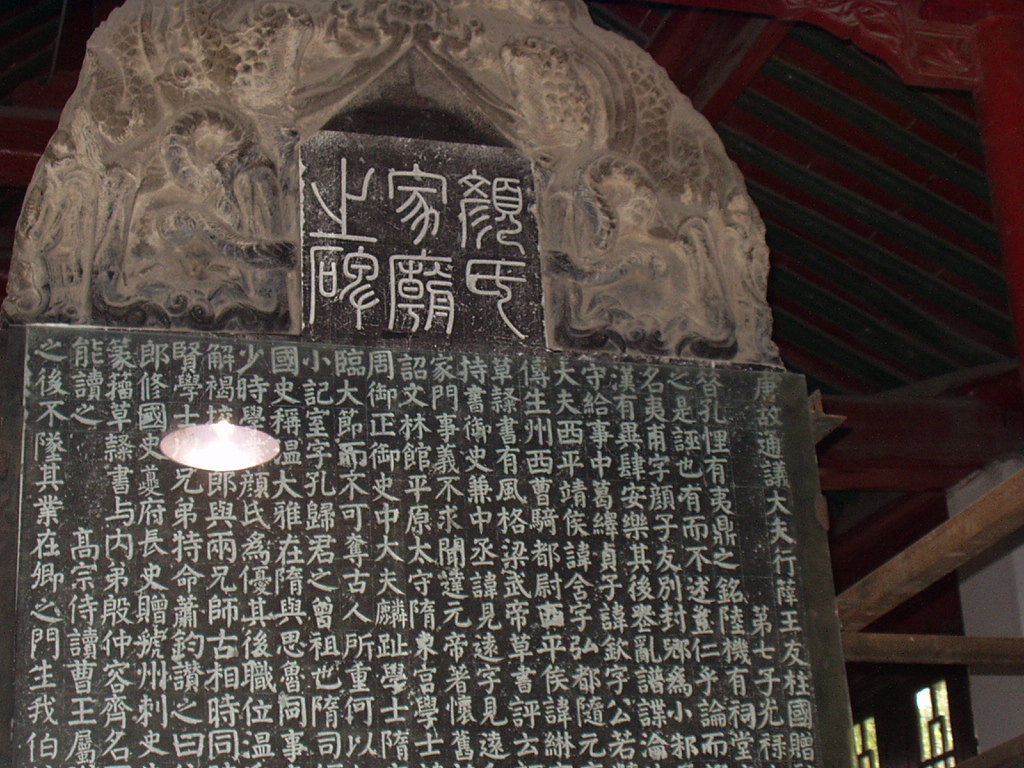 顏氏
家廟
之碑
唐故通議大夫行薛王友柱國贈
第七子光祿
孔悝有夷鼎之銘陸機有祠堂
之是誣也有而不述豈仁乎論而
名夷甫字顏子友別封郳為小邾
漢有異肆安樂其後喪亂譜諜淪
守給事中葛繹貞子諱欽字公若
大夫西平靖侯諱含字弘都隨元
傳生州西曹騎都尉西平侯諱綝
草隸書有風格梁武帝草書評云
持書御史兼中丞諱見遠字見遠
家門事義不求聞達元帝著懷舊
詔文林館平原太守隋東宮學士
周御正御史中大夫麟趾學士隋
臨大節而不可奪古人所重何以
小記室字孔歸君之曾祖也隋司
國史稱溫大雅在隋與思魯同事
少時學 顏氏為優其後職位溫
解褐 郎與兩兄師古相時同
賢學士 兄弟特命蕭鈞讚之曰
郎修國史夔府長史贈虢州刺史
篆籀草隸書与內弟殷仲容齊名
能讀之 高宗侍讀曹王屬
之後不墜其業在卿之門生我伯